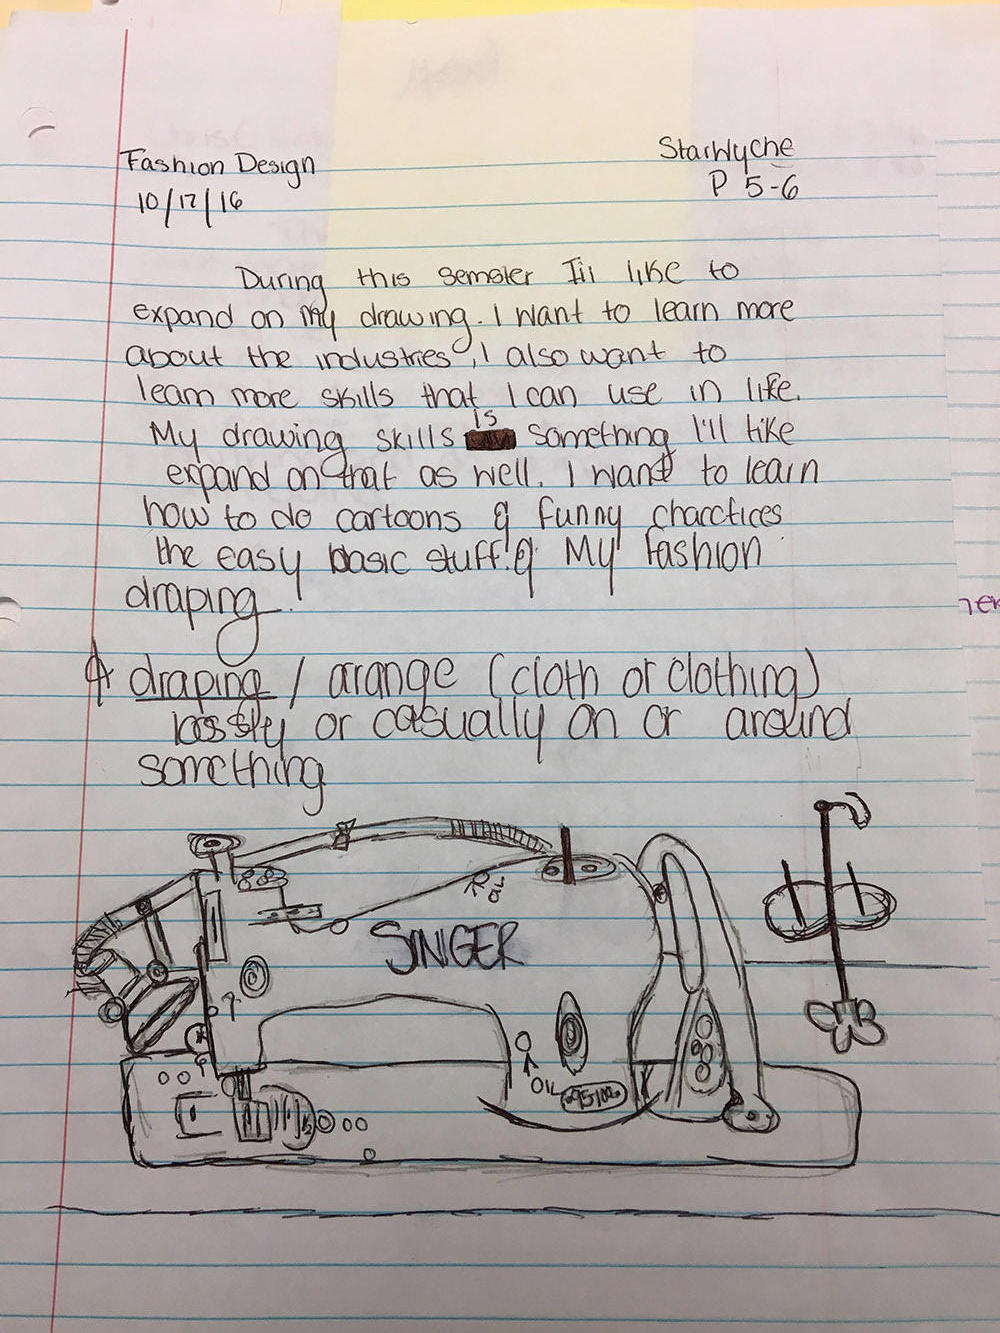 Fashion Design
StarWyche
10/17/16
P 5-6
During this semster I'll like to
expand on my drawing. I want to learn more
about the industries, I also want to
learn more skills that I can use in life.
My drawing skills is something I'll like
expand on that as well. I want to learn
how to do cartoons & funny charctices
the easy basic stuff. & My fashion
draping.
draping / arange (cloth or clothing)
or casually on or around
something
OIL
SINGER
OIL